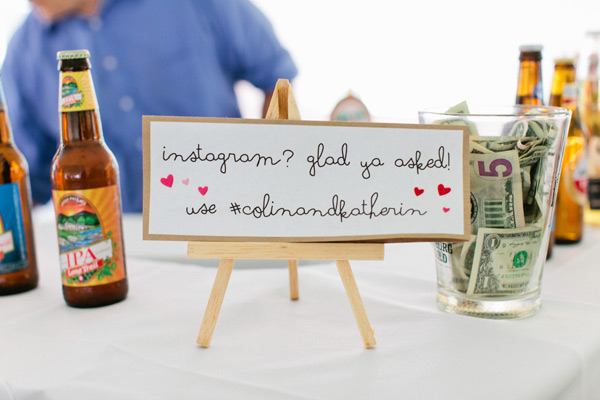 instagram? glad ya asked!
use #colinandkatherin
IPA
Long Trail
5
1